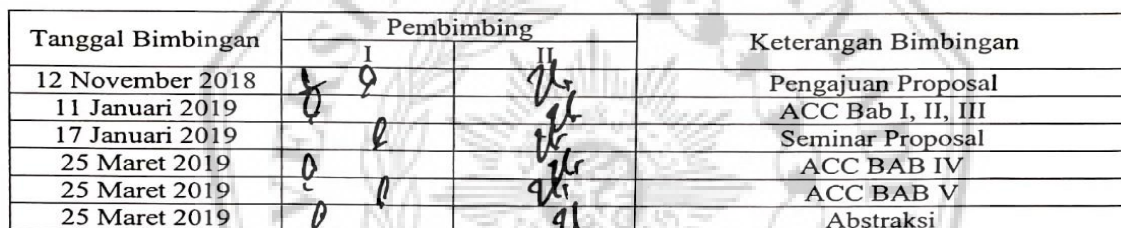 Tanggal Bimbingan Pembimbing Keterangan Bimbingan
I II
12 November 2018 Pengajuan Proposal
11 Januari 2019 ACC Bab I, II, III
17 Januari 2019 Seminar Proposal
25 Maret 2019 ACC BAB IV
25 Maret 2019 ACC BAB V
25 Maret 2019 Abstraksi